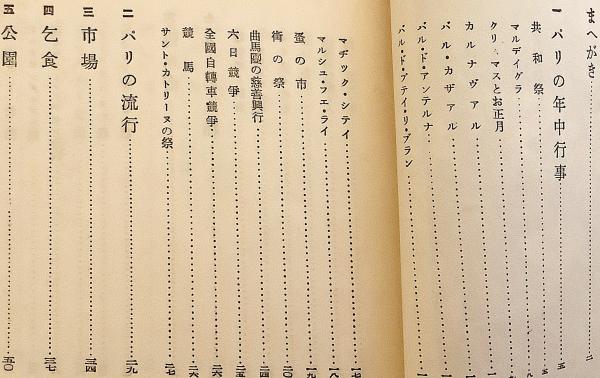 まへがき……二
一 パリの年中行事……五
共和祭……五
マルデイグラ
クリスマスとお正月
カルナヴァル
バル・カザアル
バル・ド・アンテルナ
バル・ド・プティ・リ・ブラン
マヂック・シティ……一七
マルシュ・フェ・ライ……一八
蚤の市……一九
街の祭……二〇
曲馬團の慈善興行……二四
六日競爭……二五
全國自轉車競爭……二六
競馬……二六
サント・カトリーヌの祭……二七
二 パリの流行……二九
三 市場……三四
四 乞食……三七
五 公園……五〇